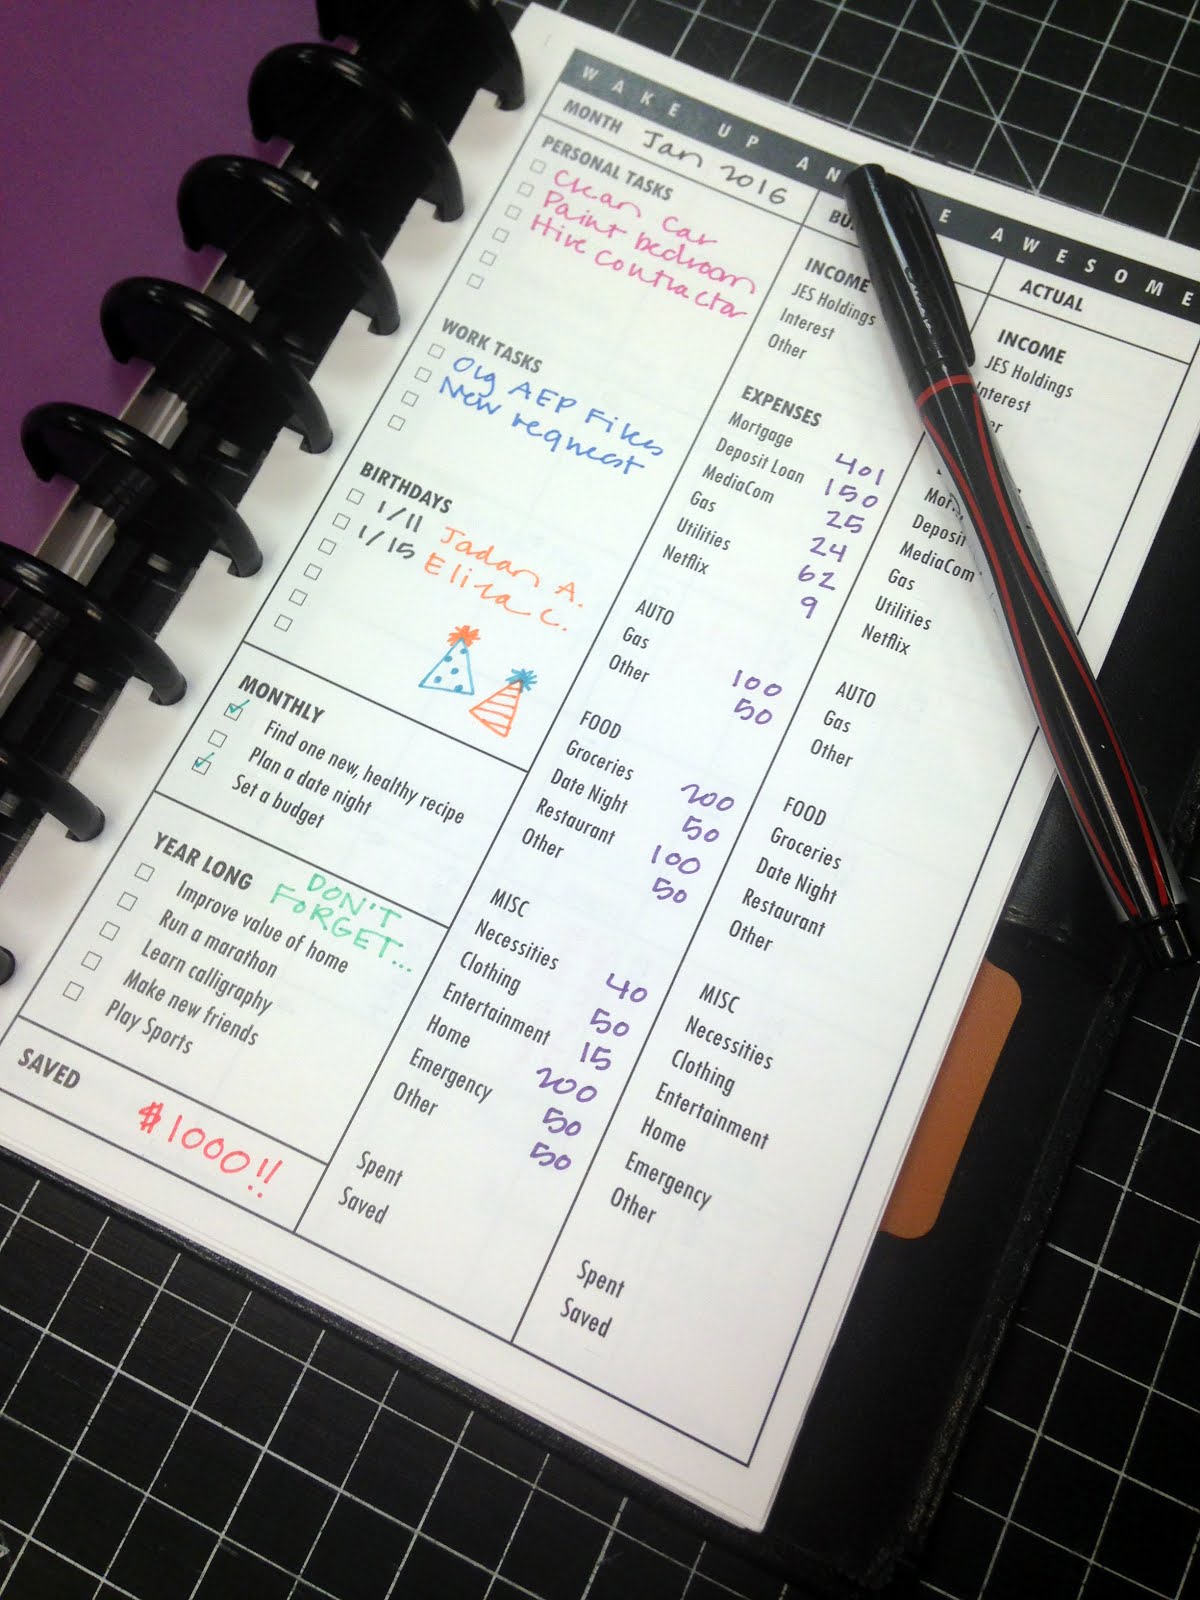 WAKE UP AN E AWESOME
MONTH Jan 2016
PERSONAL TASKS
Clean Car
Paint bedroom
Hire Contractor
WORK TASKS
Org AEP Files
New request
BIRTHDAYS
1/11 Jadan A.
1/15 Eliza C.
MONTHLY
Find one new, healthy recipe
Plan a date night
Set a budget
YEAR LONG
DON'T
FORGET...
Improve value of home
Run a marathon
Learn calligraphy
Make new friends
Play Sports
SAVED
$1000!!
BU
INCOME
JES Holdings
Interest
Other
EXPENSES
Mortgage 401
Deposit Loan 150
MediaCom 25
Gas 24
Utilities 62
Netflix 9
AUTO
Gas 100
Other 50
FOOD
Groceries 200
Date Night 50
Restaurant 100
Other 50
MISC
Necessities 40
Clothing 50
Entertainment 15
Home 200
Emergency 50
Other 50
Spent
Saved
ACTUAL
INCOME
JES Holdings
Interest
er
Mor
Deposit
MediaCom
Gas
Utilities
Netflix
AUTO
Gas
Other
FOOD
Groceries
Date Night
Restaurant
Other
MISC
Necessities
Clothing
Entertainment
Home
Emergency
Other
Spent
Saved